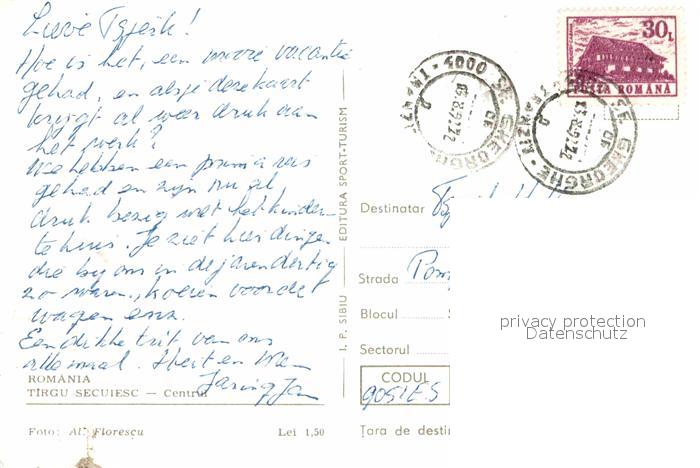 Lieve Tyjesk!
Hoe is het, een mooie vacantie
gehad, en als je deze kaart
krijgt al weer druk aan
het werk?
We hebben een prima reis
gehad en zijn nu al
druk bezig met het kinder-
tehuis. Je ziet hier dingen
die bij ons in de jaren dertig
zo waren, koeien voor de
wagen enz.
Een dikke tút van ons
allemaal. Heit en Mem
Jan
ROMÂNIA
TÎRGU SECUIESC — Centrul
Foto: Al. Florescu Lei 1,50
I. P. SIBIU EDITURA SPORT-TURISM
30 L
POSTA ROMANA
4000 SF. GHEORGHE
Destinatar
Strada
Blocul
Sectorul
CODUL
Țara de desti
privacy protection
Datenschutz